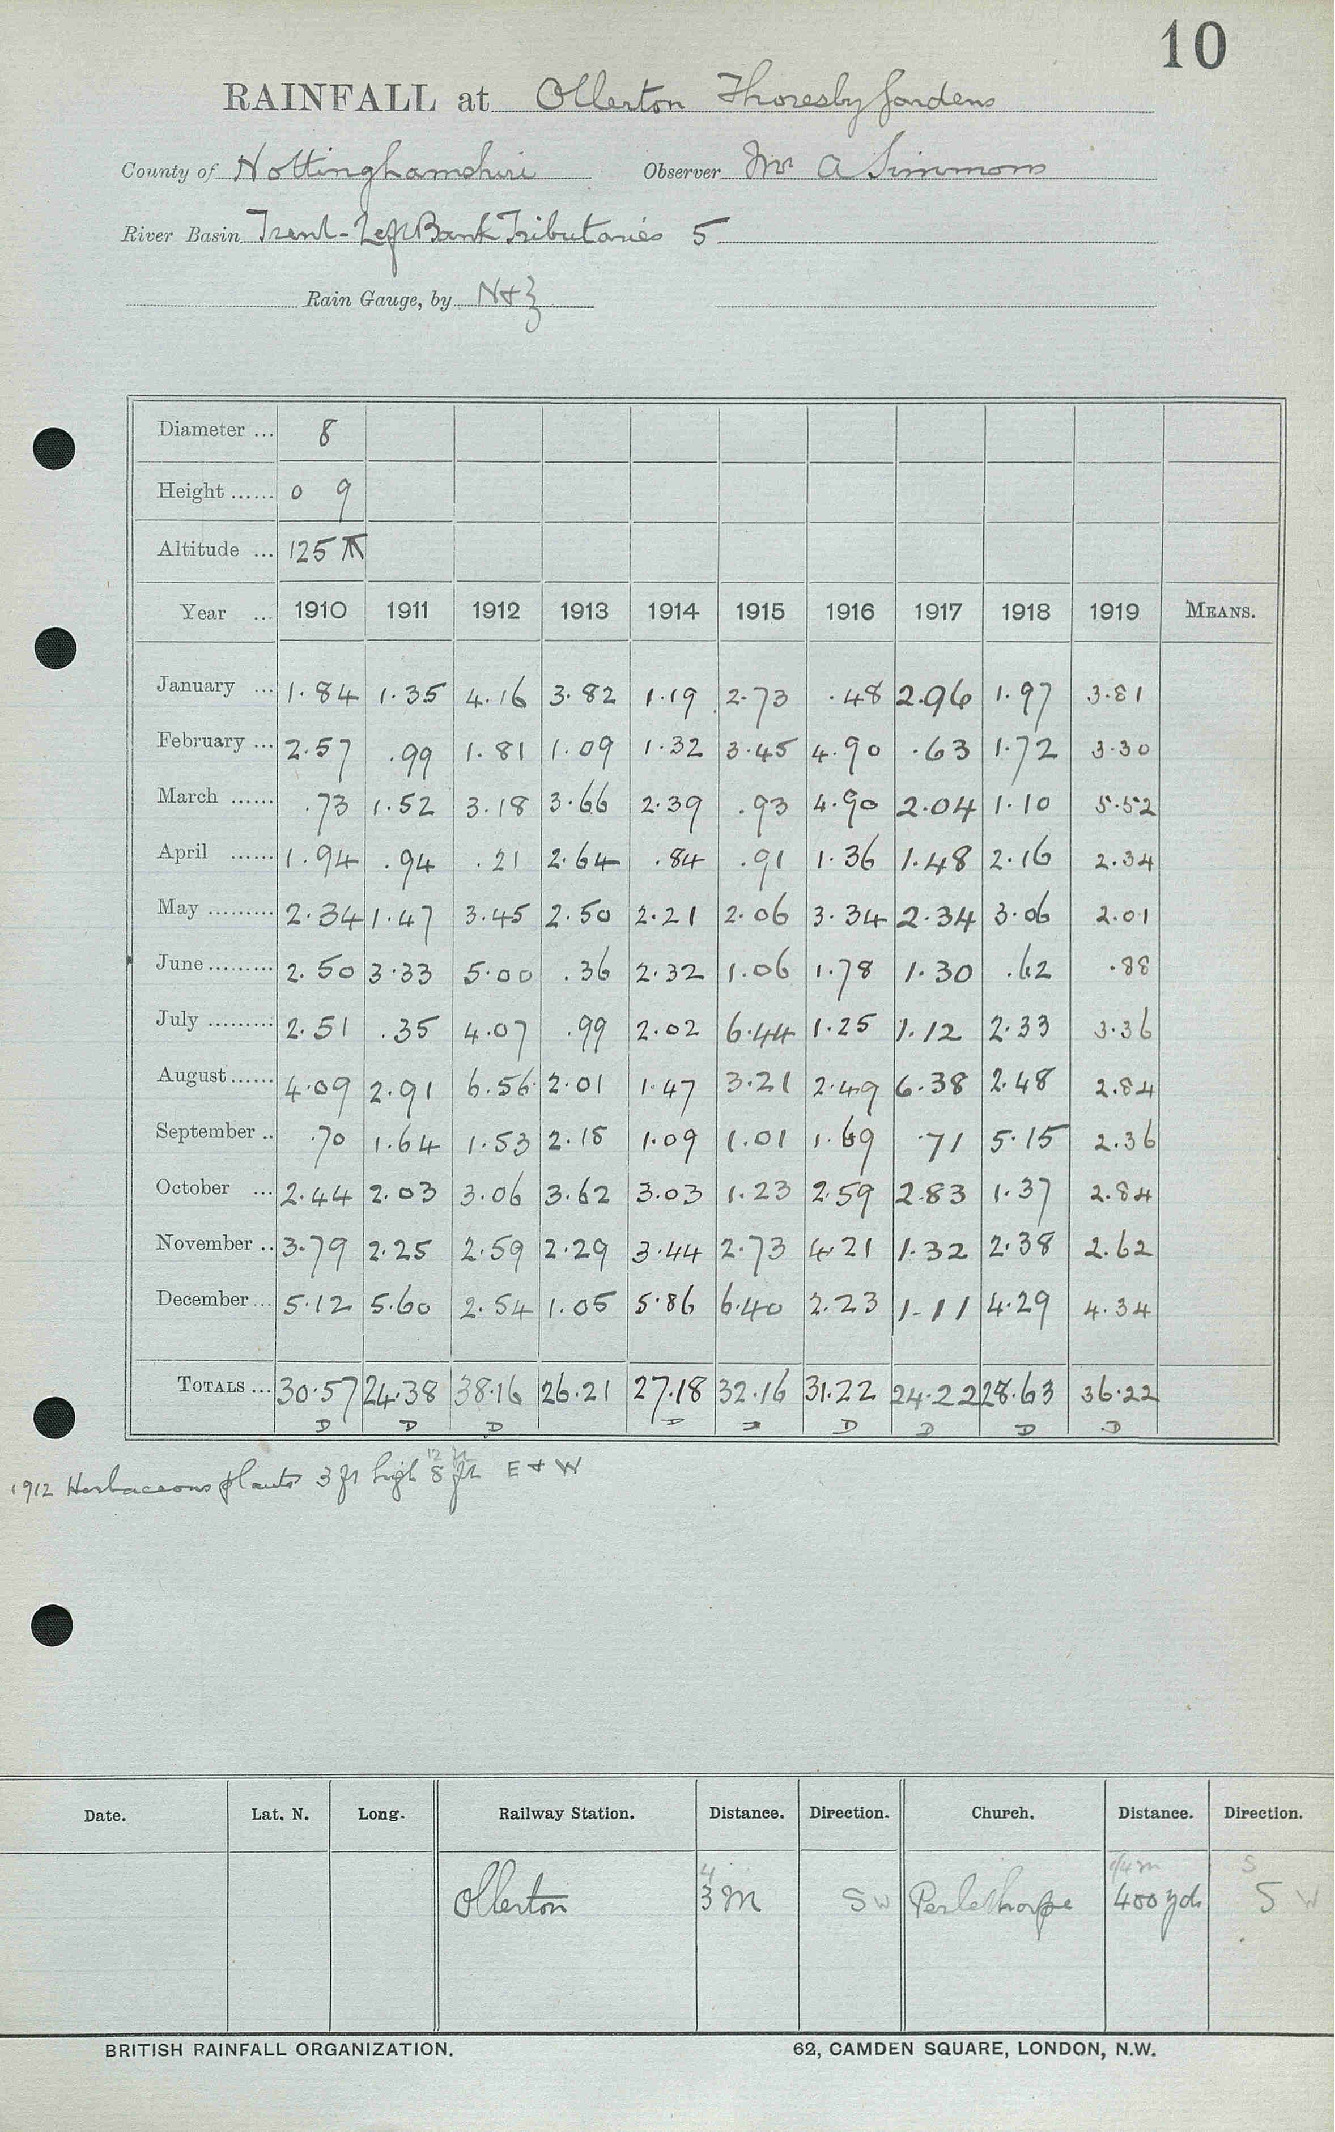 10
RAINFALL at Ollerton Thoresby Gardens
County of Nottinghamshire Observer Mr A Simmons
River Basin Trent-Left Bank Tributaries 5
Rain Gauge, by N+Z
Diameter ... 8
Height ...... 0 9
Altitude ... 125
Year .. 1910 1911 1912 1913 1914 1915 1916 1917 1918 1919 MEANS.
January ... 1.84 1.35 4.16 3.82 1.19 2.73 .48 2.96 1.97 3.81
February ... 2.57 .99 1.81 1.09 1.32 3.45 4.90 .63 1.72 3.30
March ...... .73 1.52 3.18 3.66 2.39 .93 4.90 2.04 1.10 5.52
April ...... 1.94 .94 .21 2.64 .84 .91 1.36 1.48 2.16 2.34
May ......... 2.34 1.47 3.45 2.50 2.21 2.06 3.34 2.34 3.06 2.01
June ......... 2.50 3.33 5.00 .36 2.32 1.06 1.78 1.30 .62 .88
July ......... 2.51 .35 4.07 .99 2.02 6.44 1.25 1.12 2.33 3.36
August ...... 4.09 2.91 6.56 2.01 1.47 3.21 2.49 6.38 2.48 2.84
September .. .70 1.64 1.53 2.18 1.09 1.01 1.69 .71 5.15 2.36
October ... 2.44 2.03 3.06 3.62 3.03 1.23 2.59 2.83 1.37 2.84
November .. 3.79 2.25 2.59 2.29 3.44 2.73 4.21 1.32 2.38 2.62
December ... 5.12 5.60 2.54 1.05 5.86 6.40 2.23 1.11 4.29 4.34
TOTALS ... 30.57 24.38 38.16 26.21 27.18 32.16 31.22 24.22 28.63 36.22
D D D D D D D D D
1912 Herbaceous plants 3 ft high 8 ft E + W
Date. Lat. N. Long. Railway Station. Distance. Direction. Church. Distance. Direction.
4 1/4 m S
Ollerton 3 m SW Perlethorpe 400 yds S W
BRITISH RAINFALL ORGANIZATION. 62, CAMDEN SQUARE, LONDON, N.W.